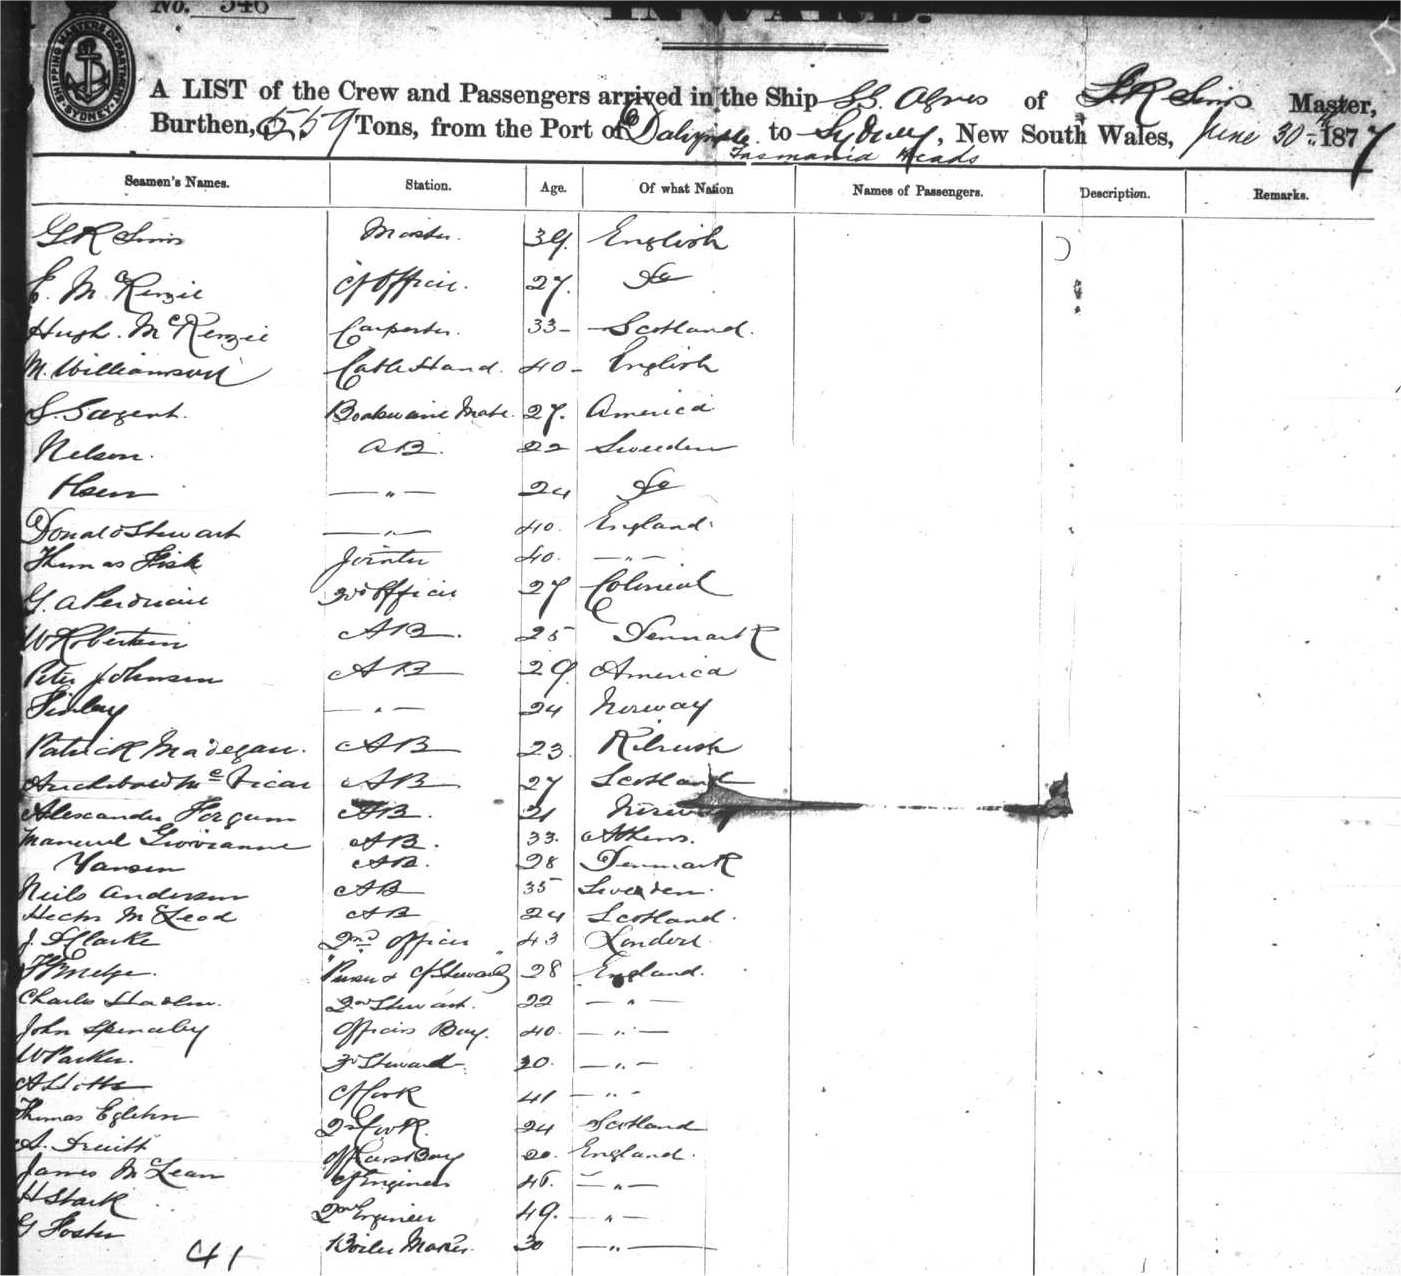 No. 346
INWARD.
SHIPPING MASTERS DEPARTMENT SYDNEY
A LIST of the Crew and Passengers arrived in the Ship SS. Agnes of G R Sims Master,
Burthen, 559 Tons, from the Port of Dalrymple to Sydney, New South Wales, June 30th 1877
Tasmania Heads
Seamen's Names. Station. Age. Of what Nation Names of Passengers. Description. Remarks.
G R Sims Master. 39. English
E. McKenzie Cf Officer. 27. Do
Hugh. McKenzie Carpenter. 33- Scotland.
M. Williamson Cable Hand. 40- English
S. Sargent. Boatswains Mate. 27. America
Nelson. AB. 22 Sweden
Olsen — " — 24 Do
Donald Stewart — " — 40. England.
Thomas Fisk Jointer 40. — " —
G. A 3rd Officer 27 Colonial
W Robertson AB. 25 Denmark
Peter Johnson AB 29 America
Finlay — " — 24 Norway
Patrick Madegan. AB 23. Kilrush
Archibald McVicar AB 27 Scotland
Alexander AB. 21 Norway
Manuel Giovianne AB. 33. Athens.
Hansen AB. 28 Denmark
Neils Anderson AB 35 Sweden.
Hector McLeod AB 24 Scotland.
J. Clarke 2nd Officer 43 London.
Purser & Cf Steward 28 England.
Charles 2nd Steward. 22 — " —
John Officers Boy. 40. — " —
W Parker. 3rd Steward 20. — " —
A Cf Cook 41 — " —
Thomas Egleton 2nd Cook. 24 Scotland
A. Truitt Officers Boy 20. England.
James McLean Cf Engineer 46. — " —
H Stark 2nd Engineer 49. — " —
G Foster Boiler Maker. 30 — " —
41